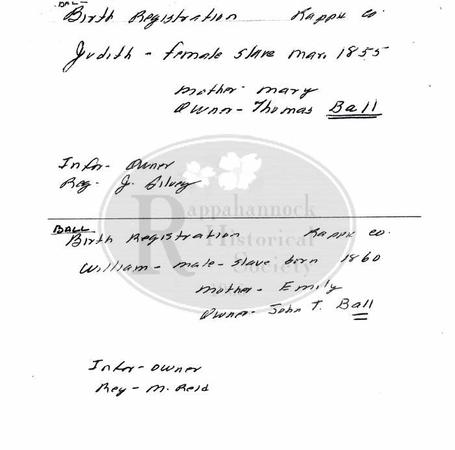 BALL
Birth Registration Rapph Co
Judith - female slave Mar. 1855
Mother - Mary
Owner - Thomas Ball
Infor - Owner
Reg. J.
Rappahannock
Historical
Society
BALL
Birth Registration Rapph Co.
William - male - slave born 1860
Mother - Emily
Owner - John T. Ball
Infor - Owner
Reg - M. Reid